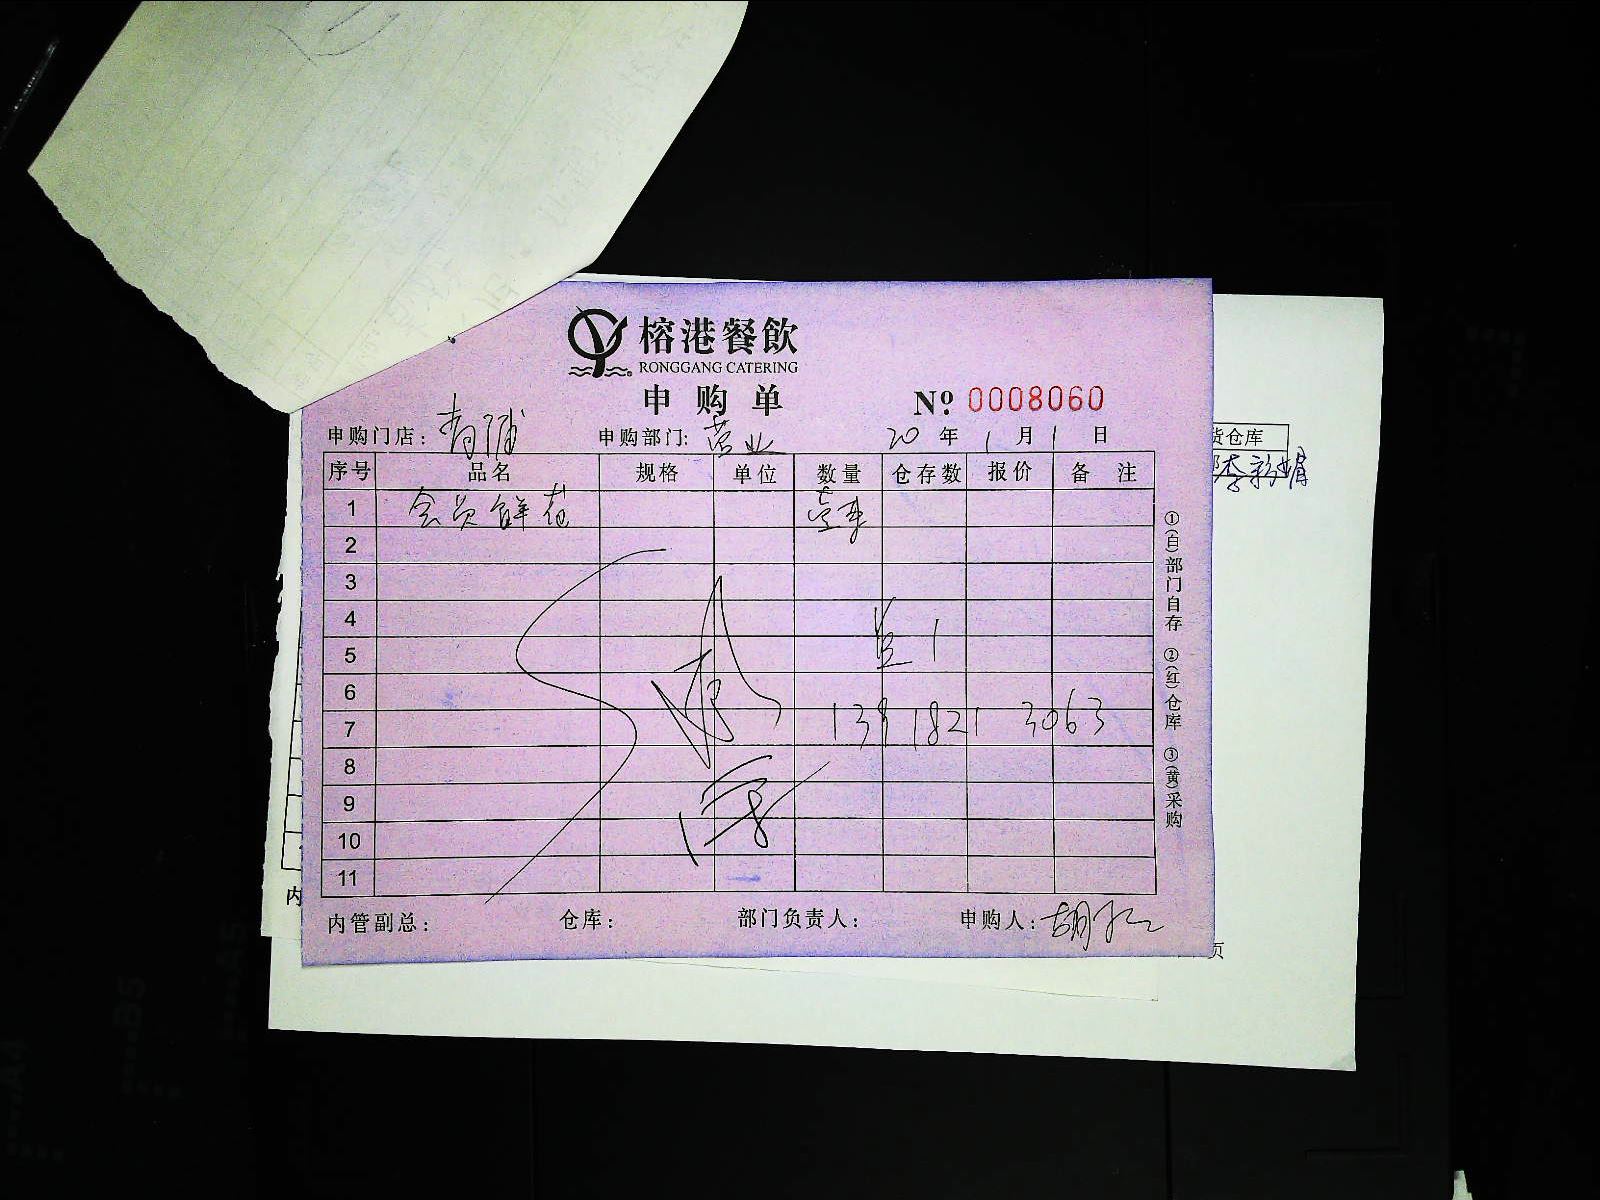 榕港餐飲
RONGGANG CATERING
申购单 Nº 0008060
申购门店: 青浦 申购部门: 营业 20年1月1日
序号 品名 规格 单位 数量 仓存数 报价 备注
1 会员鲜花 壹束
2
3
4
5
6
7 139 1821 3063
8
9
10
11
内管副总: 仓库: 部门负责人: 申购人:
①(白)部门自存 ②(红)仓库 ③(黄)采购
货仓库
内
页